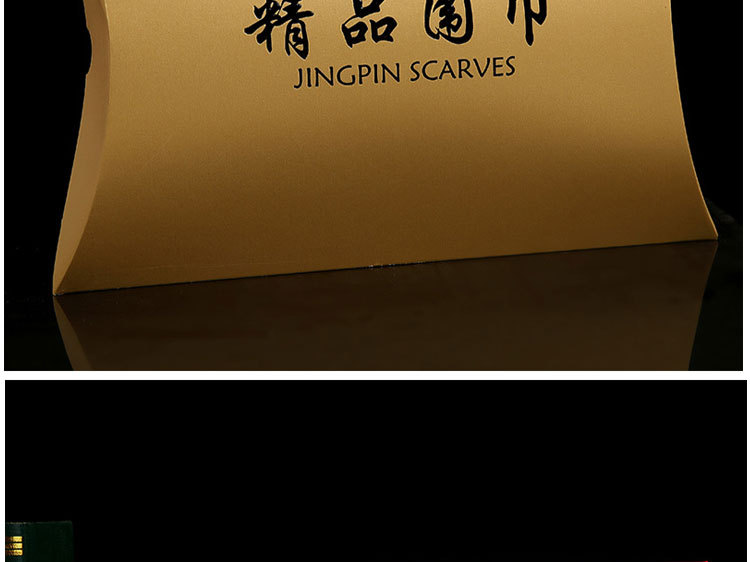 精品围巾
JINGPIN SCARVES